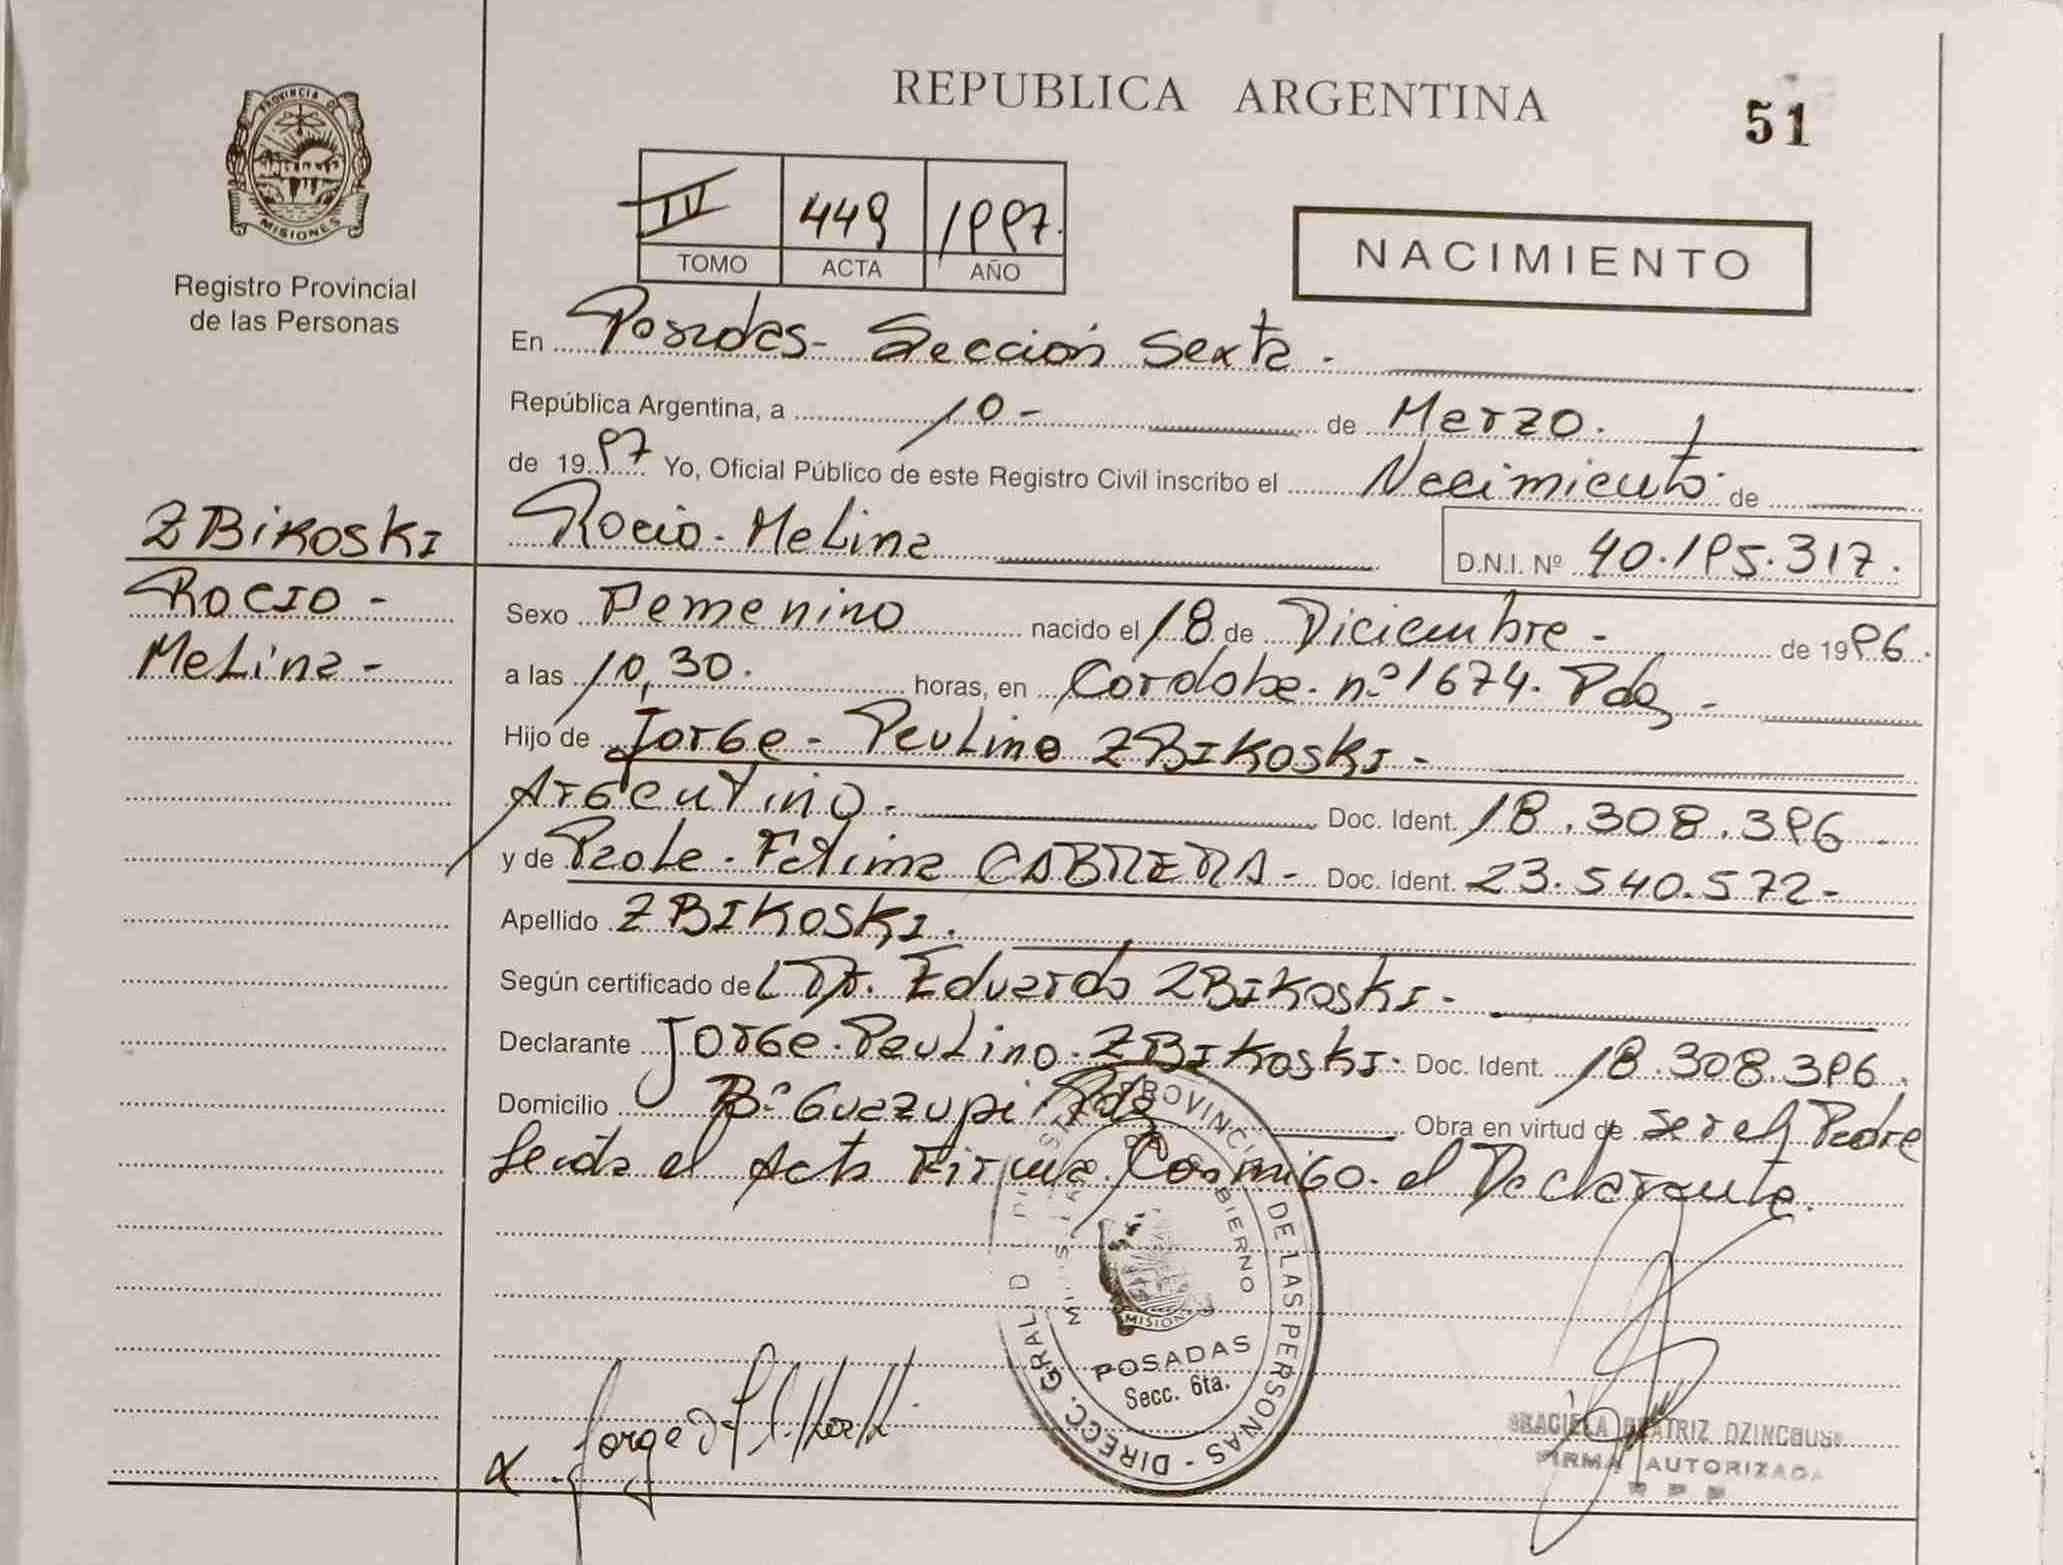 REPUBLICA ARGENTINA
51
PROVINCIA DE
MISIONES
Registro Provincial
de las Personas
IV 449 1997.
TOMO ACTA AÑO
NACIMIENTO
En Posadas- Sección Sexta.
República Argentina, a 10- de Marzo.
de 1997 Yo, Oficial Público de este Registro Civil inscribo el Nacimiento de
ZBIKOSKI
Rocio- Melina
D.N.I. Nº 40.195.317.
ROCIO-
Melina-
Sexo Femenino nacido el 18 de Diciembre- de 1996.
a las 10,30. horas, en Cordoba. nº 1674. Pdas-
Hijo de Jorge- Paulino ZBIKOSKI-
Argentino- Doc. Ident. 18.308.396-
y de Fatima CABRERA- Doc. Ident. 23.540.572-
Apellido ZBIKOSKI.
Según certificado de Eduardo ZBIKOSKI-
Declarante Jorge-Paulino-ZBIKOSKI- Doc. Ident. 18.308.396.
Domicilio Bº Guazupi Pdas Obra en virtud de ser el Padre
Leida el Acta Firma Conmigo el Declarante.
PROVINCIAL DE LAS PERSONAS - DIRECC. GRAL D
GOBIERNO
MISIONES
POSADAS
Secc. 6ta.
GRACIELA BEATRIZ
FIRMA AUTORIZADA